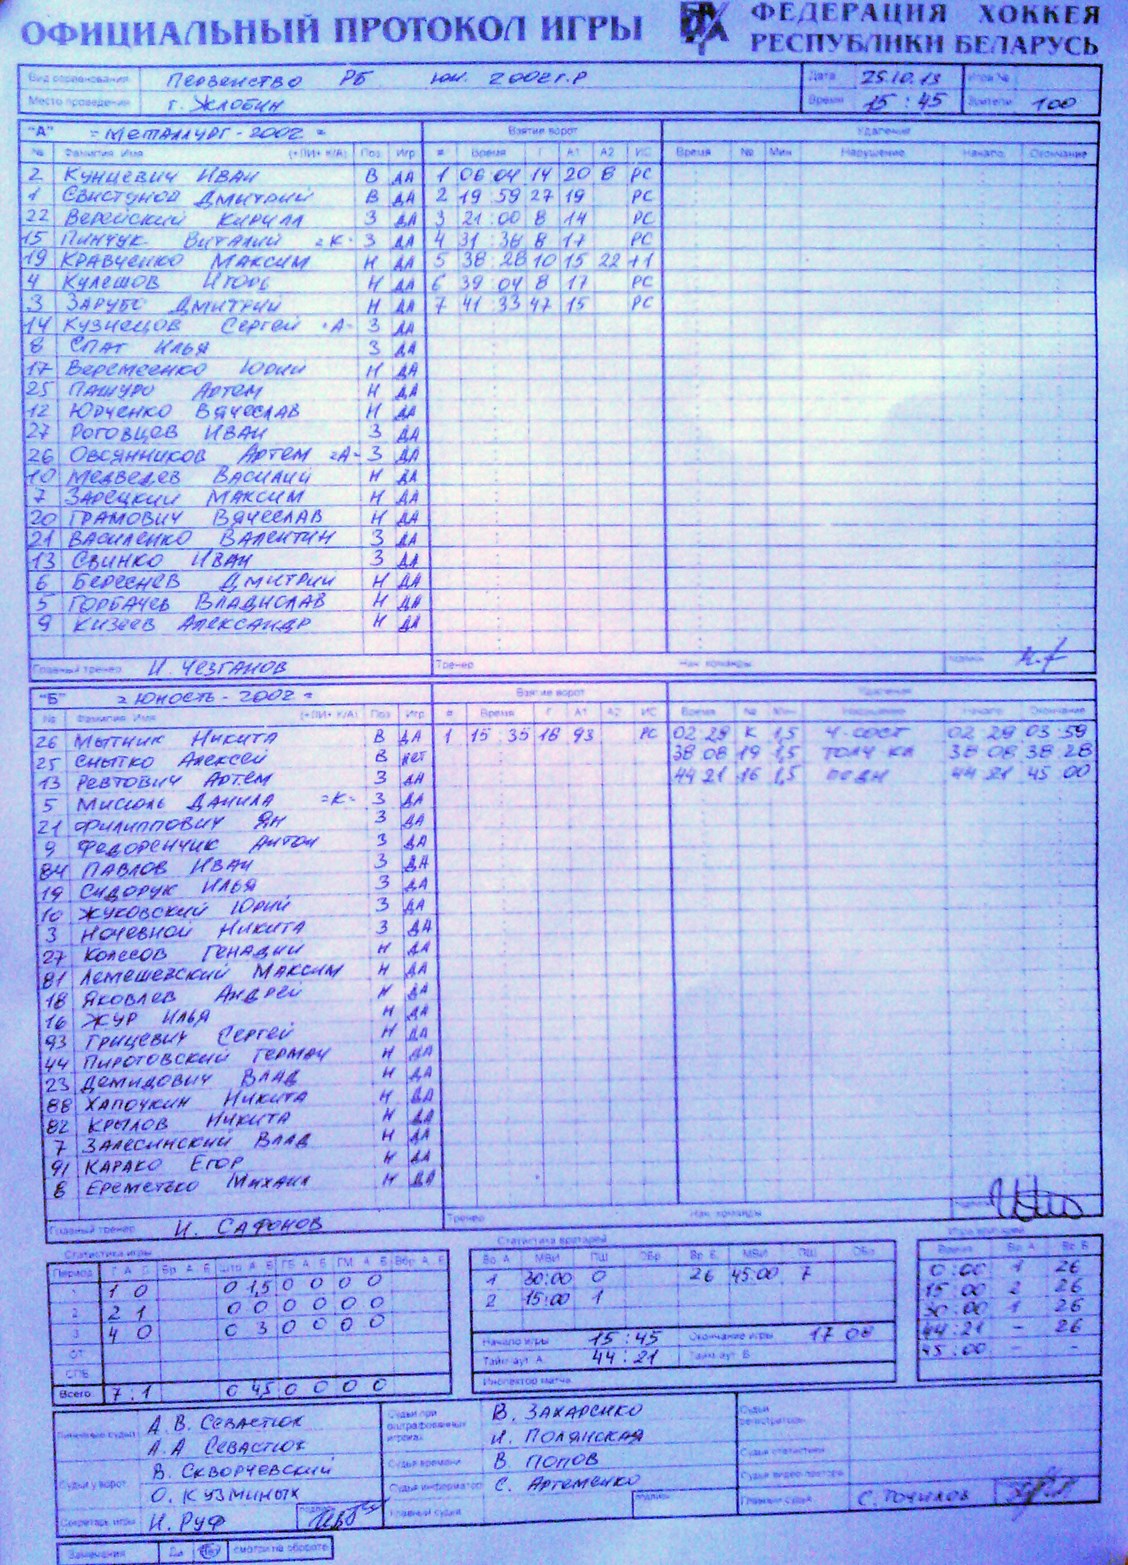 ОФИЦИАЛЬНЫЙ ПРОТОКОЛ ИГРЫ
ФЕДЕРАЦИЯ ХОККЕЯ
РЕСПУБЛИКИ БЕЛАРУСЬ
Вид соревнования Первенство РБ юн. 2002г.р Дата 25.10.13 Игра №
Место проведения г. Жлобин Время 15:45 Зрители 100
"А" = Металлург-2002 = Взятие ворот Удаления
№ Фамилия Имя (+ПИ+ К/А) Поз Игр # Время Г А1 А2 ИС Время № Мин Нарушение Начало Окончание
2 Кунцевич Иван В ДА 1 06 04 14 20 8 РС
1 Свистунов Дмитрий В ДА 2 19 59 27 19 РС
22 Верейский Кирилл З ДА 3 21:00 8 14 РС
15 Пинчук Виталий =К= З ДА 4 31:36 8 17 РС
19 Кравченко Максим Н ДА 5 38:28 10 15 22 +1
4 Кулешов Игорь Н ДА 6 39 04 8 17 РС
3 Зарубо Дмитрий Н ДА 7 41:33 47 15 РС
14 Кузнецов Сергей -А- З ДА
8 Спат Илья З ДА
17 Веремеенко Юрий Н ДА
25 Пашуро Артем Н ДА
12 Юрченко Вячеслав Н ДА
27 Роговцев Иван З ДА
26 Овсянников Артем =А= З ДА
10 Медведев Василий Н ДА
7 Зарецкий Максим Н ДА
20 Грамович Вячеслав Н ДА
21 Василенко Валентин З ДА
13 Свинко Иван З ДА
6 Береснев Дмитрий Н ДА
5 Горбачев Владислав Н ДА
9 Кизеев Александр Н ДА
Главный тренер И. Чезганов Тренер Нач. команды подпись
"Б" = Юность-2002 = Взятие ворот Удаления
№ Фамилия Имя (+ПИ+ К/А) Поз Игр # Время Г А1 А2 ИС Время № Мин Нарушение Начало Окончание
26 Мытник Никита В ДА 1 15 35 18 93 РС 02 29 К 1,5 Ч-СОСТ 02 29 03 59
25 Снытко Алексей В нет 38 08 19 1,5 ТОЛЧ КЛ 38 08 38 28
13 Ревтович Артем З ДА 44 21 16 1,5 подн 44 21 45 00
5 Мисюль Данила =К= З ДА
21 Филиппович Ян З ДА
9 Федоренчик Антон З ДА
84 Павлов Иван З ДА
19 Сидорук Илья З ДА
10 Жуковский Юрий З ДА
3 Ночевной Никита З ДА
27 Колесов Генадий Н ДА
81 Лемешевский Максим Н ДА
18 Яковлев Андрей Н ДА
16 Жур Илья Н ДА
93 Грицевич Сергей Н ДА
44 Пиротовский Герман Н ДА
23 Демидович Влад Н ДА
88 Хапочкин Никита Н ДА
82 Крылов Никита Н ДА
7 Залесинский Влад Н ДА
91 Карако Егор Н ДА
8 Ереметько Михаил Н ДА
Главный тренер И. Сафонов Тренер Нач. команды подпись
Статистика игры Статистика вратарей
Период Г А Б Бр А Б Штр А Б ГБ А Б ГМ А Б Вбр А Б Вр А МВИ ПШ ОБр Вр Б МВИ ПШ ОБр Время Вр А Вр Б
1 1 0 0 1,5 0 0 0 0 1 30:00 0 26 45:00 7 0:00 1 26
2 2 1 0 0 0 0 0 0 2 15:00 1 15:00 2 26
3 4 0 0 3 0 0 0 0 30:00 1 26
ОТ Начало игры 15:45 Окончание игры 17 08 44:21 - 26
СПБ Тайм-аут А 44:21 Тайм-аут Б 45:00 - -
Всего 7:1 0 4,5 0 0 0 0 Инспектор матча
Линейные судьи А.В. Севастюк Судьи при оштрафованных игроках В. Захаренко Судьи регистраторы
А.А Севастюк И. Полянская
Судьи у ворот В. Скворчевский Судья времени В Попов Судья статистики
О. Кузьминых Судья информатор С. Артеменко Судья видео-повтора
Секретарь игры И. Руф подпись Главный судья подпись Главный судья С. Точилов
Замечания Да Нет смотри на обороте